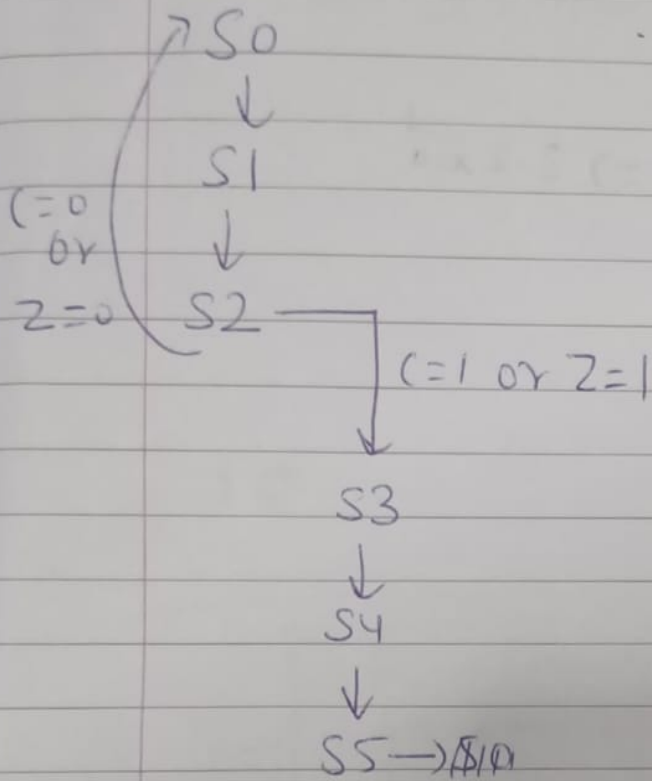 S0
↓
S1
↓
C=0
or
Z=0
S2
C=1 or Z=1
S3
↓
S4
↓
S5 →